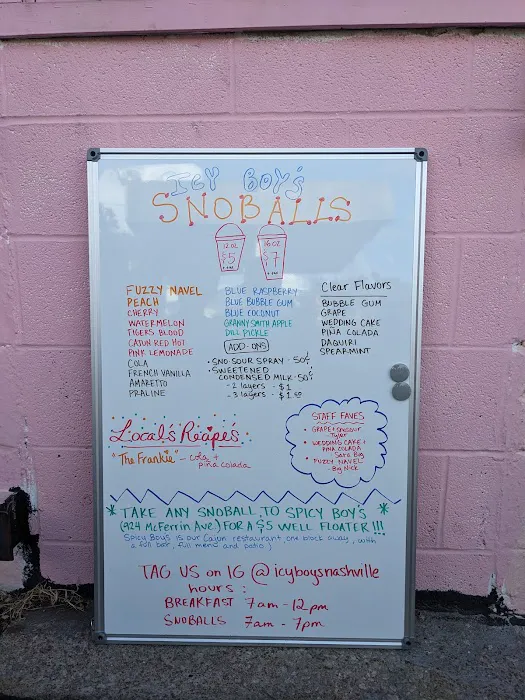 ICY BOY'S
SNOBALLS
12 OZ
$5
16 OZ
$7
FUZZY NAVEL
PEACH
CHERRY
WATERMELON
TIGERS BLOOD
CAJUN RED HOT
PINK LEMONADE
COLA
FRENCH VANILLA
AMARETTO
PRALINE
BLUE RASPBERRY
BLUE BUBBLE GUM
BLUE COCONUT
GRANNY SMITH APPLE
DILL PICKLE
ADD-ONS
• SNO-SOUR SPRAY - 50¢
• SWEETENED
CONDENSED MILK - 50¢
- 2 layers - $1
- 3 layers - $1.50
Clear Flavors
BUBBLE GUM
GRAPE
WEDDING CAKE
PIÑA COLADA
DAQUIRI
SPEARMINT
Local's Recipe's
"The Frankie" - cola +
piña colada
STAFF FAVES
• GRAPE + SnoSour
Tyler
• WEDDING CAKE +
PIÑA COLADA
Sara Big
• FUZZY NAVEL
- Big Nick
* TAKE ANY SNOBALL TO SPICY BOY'S *
(924 McFerrin Ave.) FOR A $5 WELL FLOATER!!!
(Spicy Boy's is our Cajun restaurant, one block away, with
a full bar, full menu and patio)
TAG US on IG @icyboysnashville
hours:
BREAKFAST 7am - 12pm
SNOBALLS 7am - 7pm